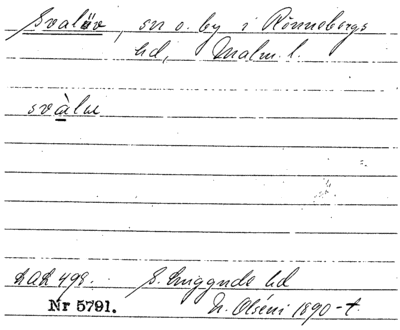 Svalöv, sn o. by i Rönnebergs
hd, Malm. l.
svàlu
LAL 498. S. Luggude hd
Nr 5791. N. Olséni 1890-t.